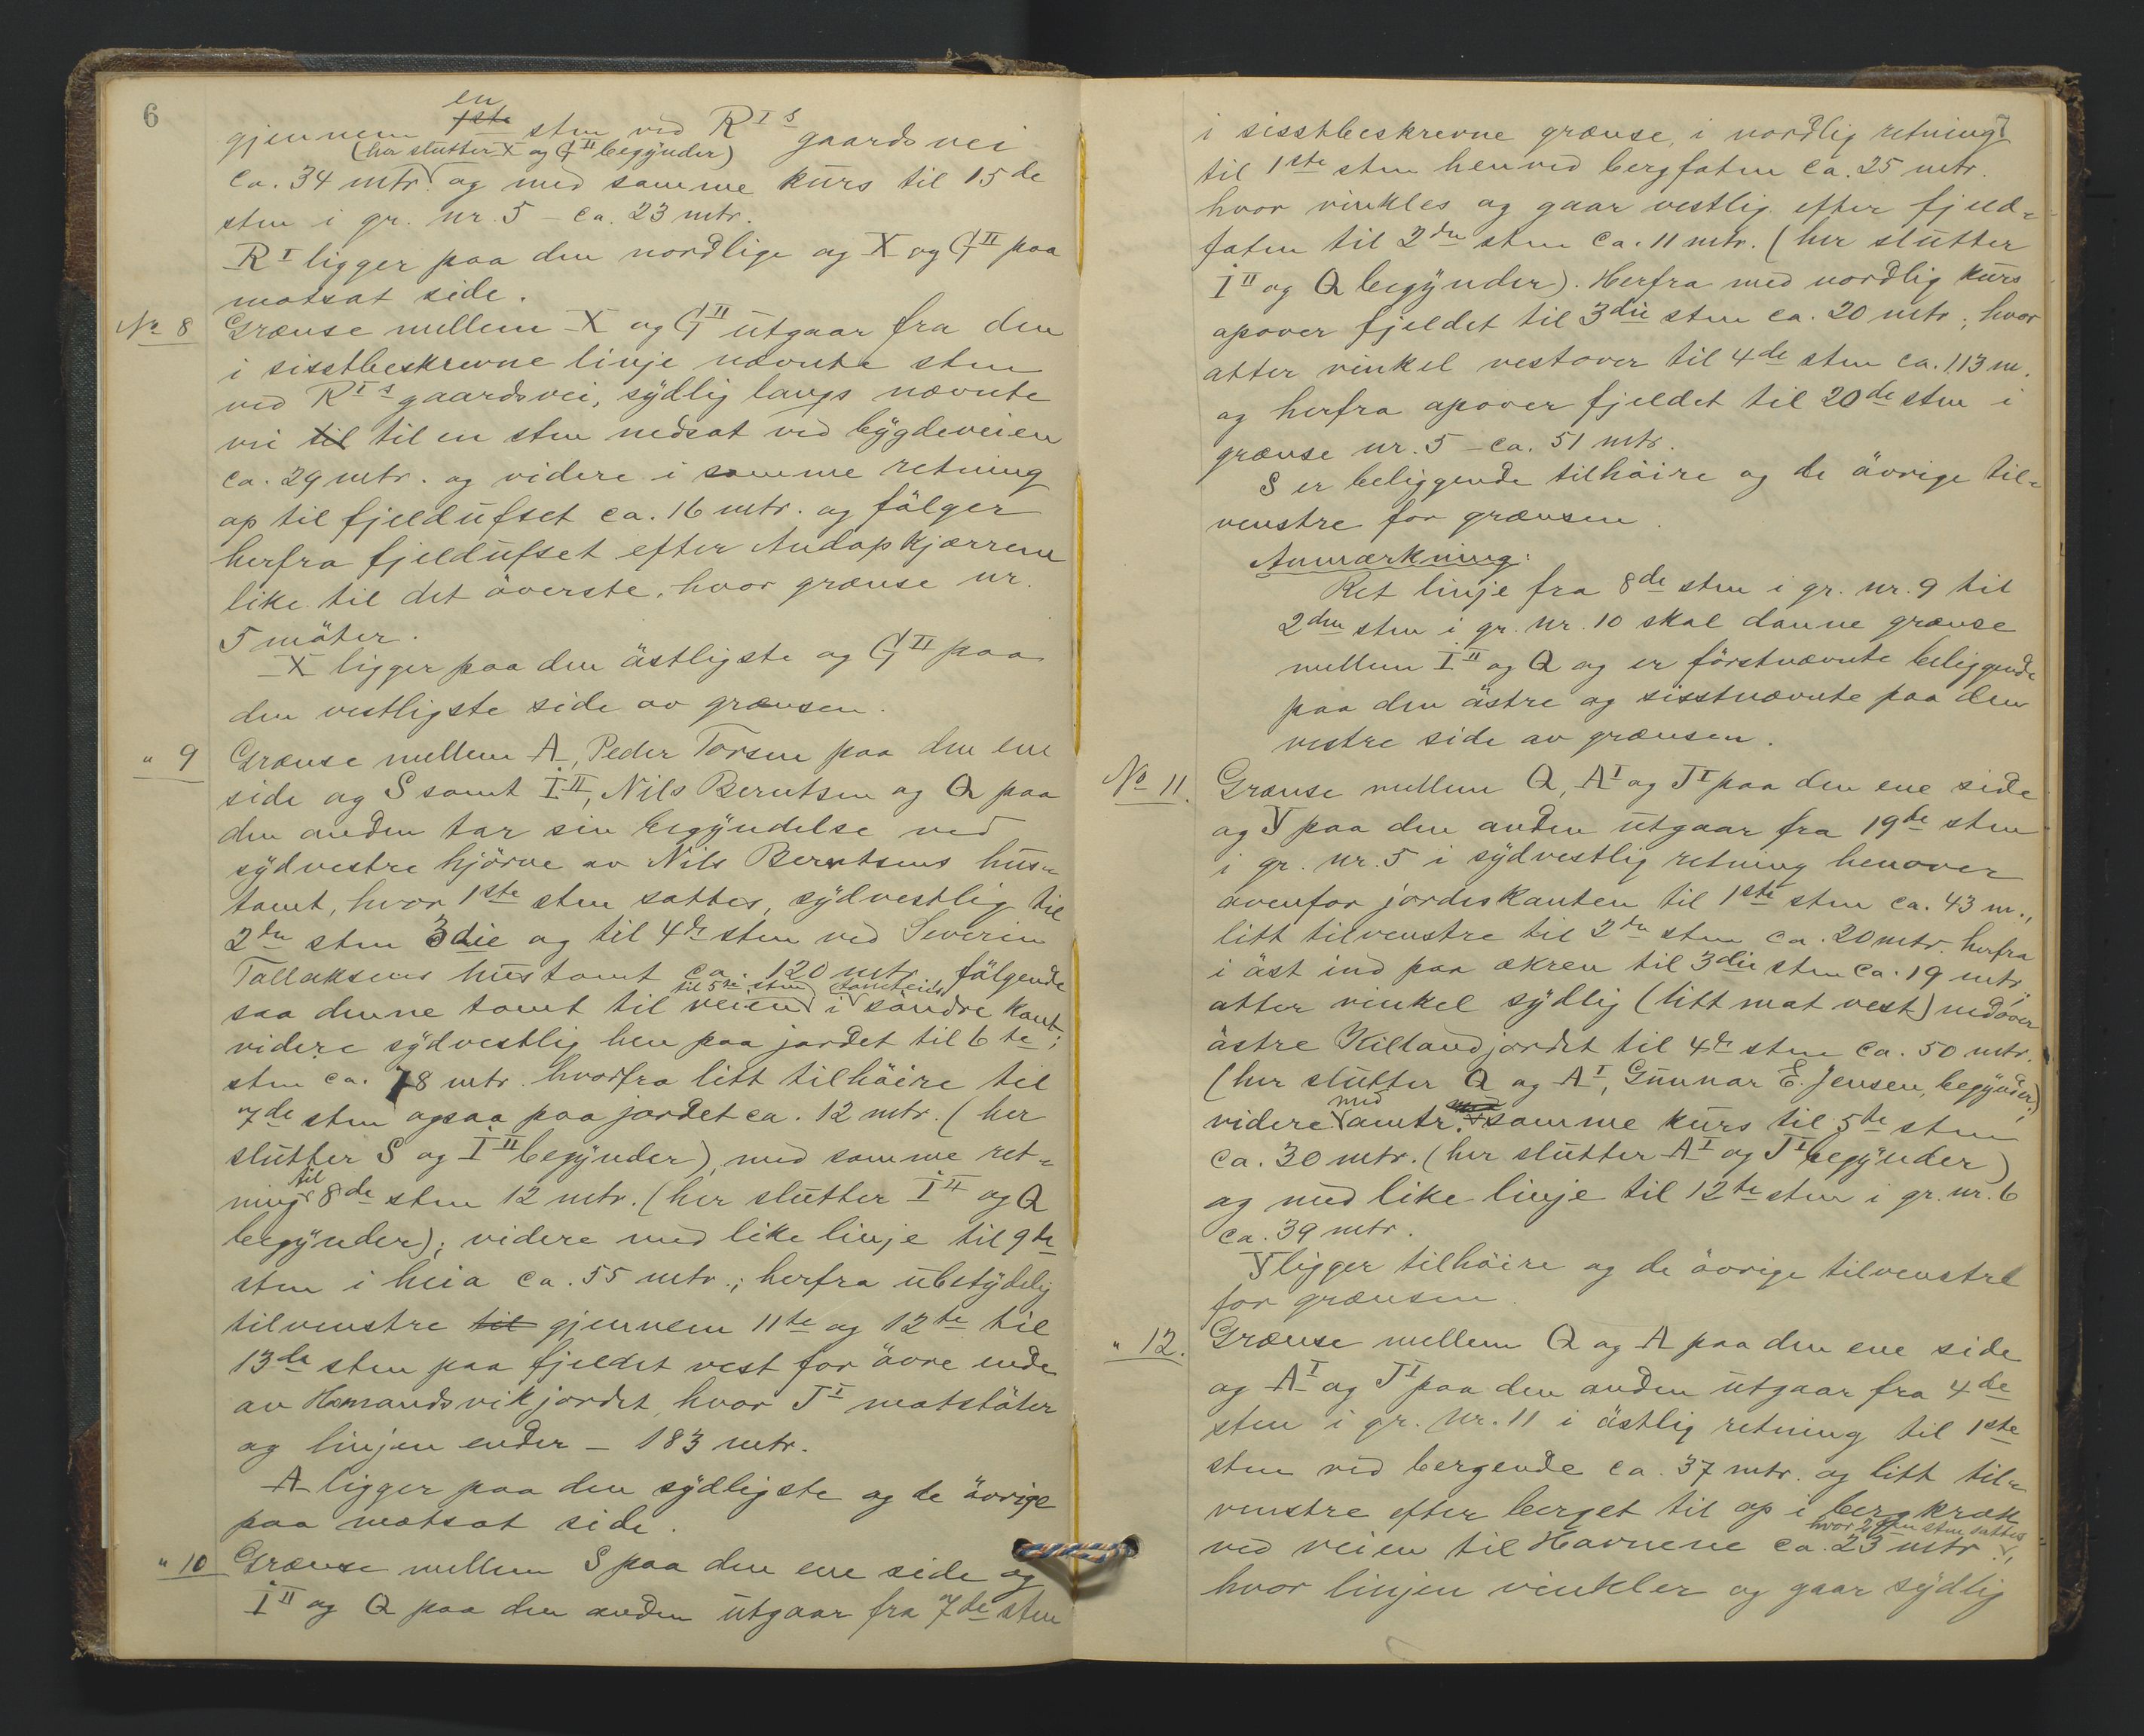 6
en
gjennem 1ste sten ved R I s gaardsvei
(her slutter X og G II begÿnder)
ca. 34 mtr. og med samme kurs til 15de
sten i gr. nr. 5 – ca. 23 mtr.
R I ligger paa den nordlige og X og G II paa
motsat side.
No 8 Grænse mellem X og G II utgaar fra den
i sisstbeskrevne linje nævnte sten
ved R I s gaardsvei, sÿdlig langs nævnte
vei til til en sten nedsat ved bÿgdeveien
ca. 29 mtr. og videre i samme retning
op til fjeldufset ca. 16 mtr. og fölger
herfra fjeldufset efter Andapkjærrene
like til det överste, hvor grænse nr.
5 möter.
X ligger paa den östligste og G II paa
den vestligste side av grænsen.
" 9 Grænse mellem A, Peder Torsen paa den ene
side og S samt I II, Nils Berntsen og Q paa
den anden tar sin begÿndelse ved
sÿdvestre hjörne av Nils Berntsens hus-
tomt, hvor 1ste sten sattes, sÿdvestlig til
2den sten 3die og til 4de sten ved Severin
Tallaksens hustomt ca. 120 mtr., fölgende
til 5te sten tomtens
saa denne tomt til veien i söndre kant;
videre sÿdvestlig hen paa jordet til 6te
sten ca. 78 mtr. hvorfra litt tilhöire til
7de sten ogsaa paa jordet ca. 12 mtr. (her
slutter S og I II begÿnder), med samme ret-
til
ning 8de sten 12 mtr. (her slutter I II og Q
begÿnder); videre med like linje til 9de
sten i heia ca. 55 mtr.; herfra ubetÿdelig
tilvenstre til gjennem 11te og 12te til
13de sten paa fjeldet vest for övre ende
av Homandsvikjordet, hvor T I motstöter
og linjen ender – 183 mtr.
A ligger paa den sÿdligste og de övrige
paa motsat side.
" 10 Grænse mellem S paa den ene side og
I II og Q paa den anden utgaar fra 7de sten
i sisstbeskrevne grænse, i nordlig retning
til 1ste sten henved bergfoten ca. 25 mtr.
hvor vinkles og gaar vestlig efter fjeld-
foten til 2den sten ca. 11 mtr. (her slutter
I II og Q begÿnder). Herfra med nordlig kurs
opover fjeldet til 3die sten ca. 20 mtr., hvor
atter vinkel vestover til 4de sten ca. 113 m.
og herfra opover fjeldet til 20de sten i
grænse nr. 5 – ca. 51 mtr.
S er beliggende tilhöire og de övrige til-
venstre for grænsen.
Anmærkning:
Ret linje fra 8de sten i gr. nr. 9 til
2den sten i gr. nr. 10 skal danne grænse
mellem I II og Q og er förstnævnte beliggende
paa den östre og sisstnævnte paa den
vestre side av grænsen.
No 11. Grænse mellem Q, A I og T I paa den ene side
og V paa den anden utgaar fra 19de sten
i gr. nr. 5 i sÿdvestlig retning henover
ovenfor jordskanten til 1ste sten ca. 43 m.,
litt tilvenstre til 2den sten ca. 20 mtr. herfra
i öst ind paa akren til 3die sten ca. 19 mtr.,
atter vinkel sÿdlig (litt mot vest) nedover
östre Killandjordet til 4de sten ca. 50 mtr.
(her slutter Q og A I, Gunnar E. Jensen, begÿnder),
med
videre omtr. samme kurs til 5te sten
ca. 30 mtr. (her slutter A I og T I begÿnder)
og med like linje til 12te sten i gr. nr. 6
ca. 39 mtr.
V ligger tilhöire og de övrige tilvenstre
for grænsen.
" 12. Grænse mellem Q og A paa den ene side
og A I og T I paa den anden utgaar fra 4de
sten i gr. Nr. 11 i östlig retning til 1ste
sten ved bergende ca. 37 mtr. og litt til-
venstre efter berget til op i bergkrok
hvor 2den sten sattes
ved veien til Havnene ca. 23 mtr.,
hvor linjen vinkler og gaar sÿdlig